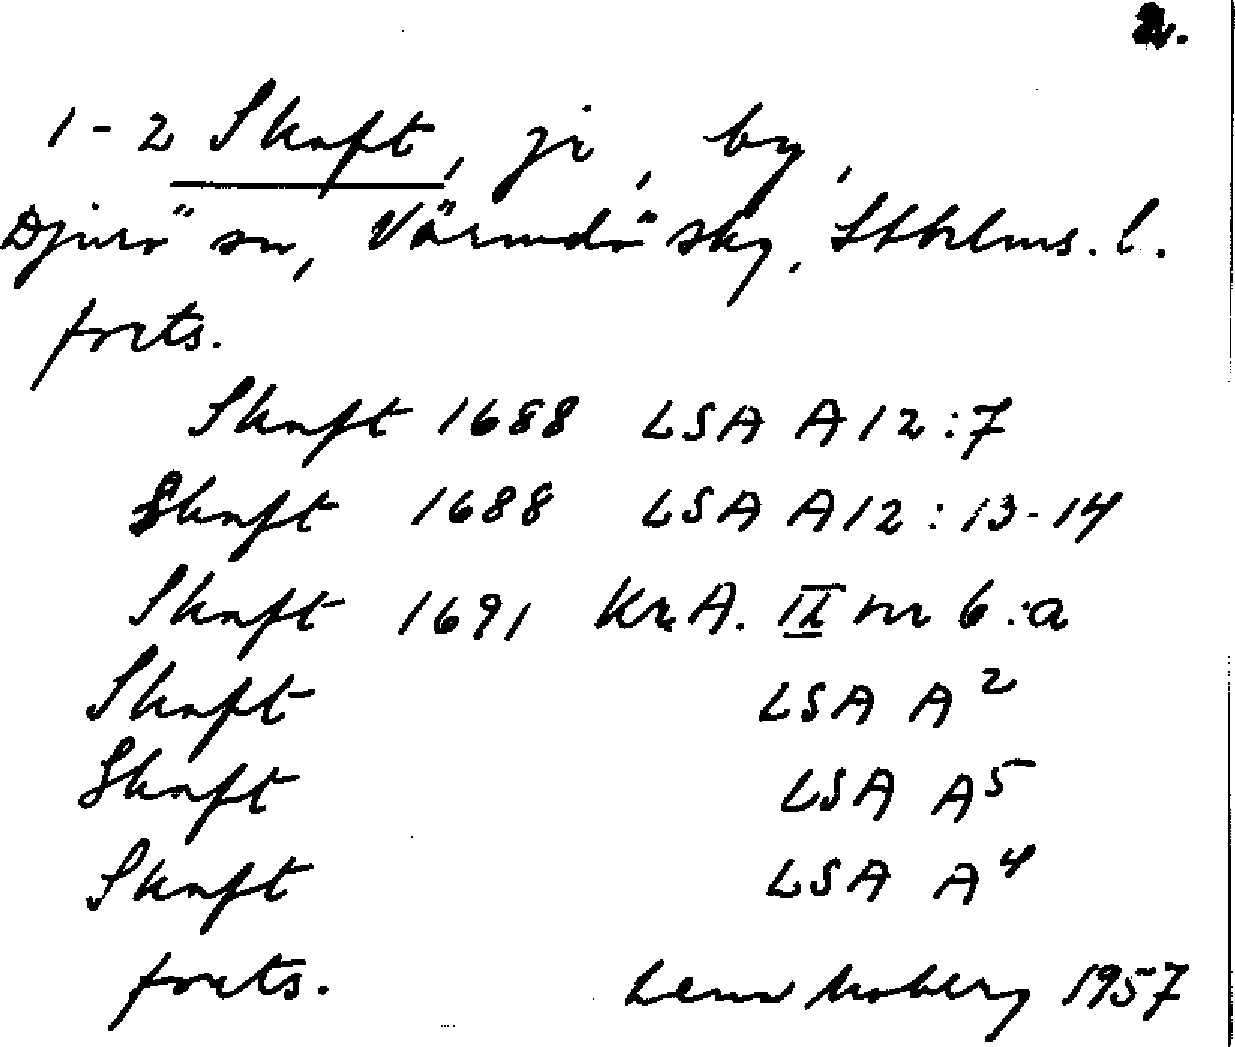 2.
1-2 Skaft, ji, by,
Djurö sn, Värmdö skg, Sthlms. l.
forts.
Skaft 1688 LSA A12:7
Skaft 1688 LSA A12:13-14
Skaft 1691 Kr.A. IX nr 6:a
Skaft LSA A²
Skaft LSA A⁵
Skaft LSA A⁴
forts. Lena Moberg 1957